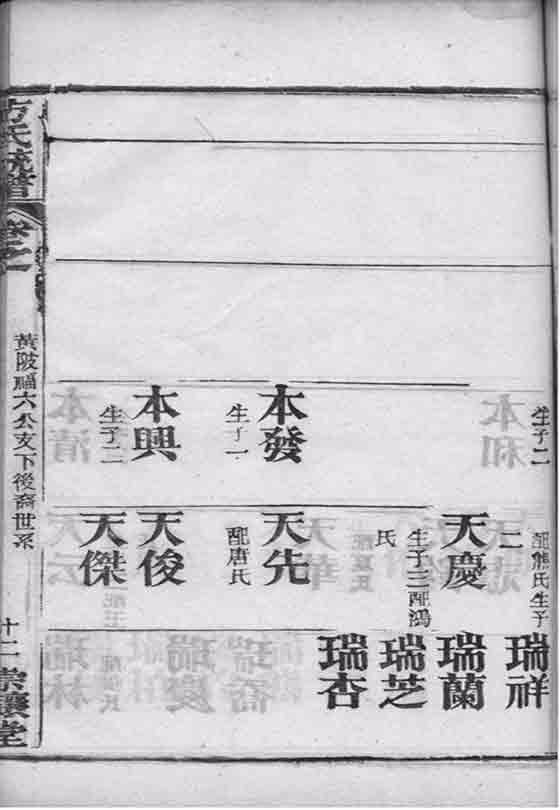 生子二
本發
生子一
本興
生子二
配熊氏生子
二
天慶
生子三配鴻
氏
天先
配唐氏
天俊
天傑
瑞祥
瑞蘭
瑞芝
瑞杏
方氏統譜
卷之一
黃陂福六公支下後裔世系
十二
堂